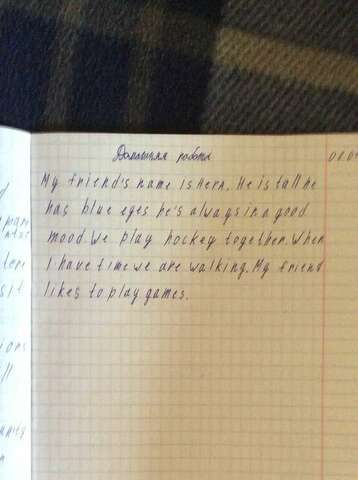 Домашняя работа
My friend's name is Hera. He is tall he
has blue eyes he's always in a good
mood. We play hockey together. When
I have time we are walking. My friend
likes to play games.